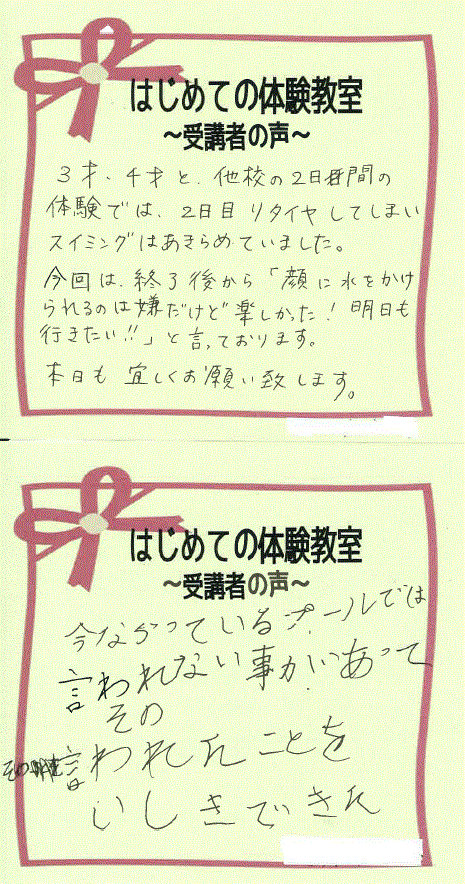 はじめての体験教室
～受講者の声～
3才、4才と、他校の2日間の
体験では、2日目リタイヤしてしまい
スイミングはあきらめていました。
今回は、終了後から「顔に水をかけ
られるのは嫌だけど楽しかった！明日も
行きたい!!」と言っております。
本日も宜しくお願い致します。
はじめての体験教室
～受講者の声～
今ならっているプールでは
言われない事があって
その
言われたことを
いしきできた